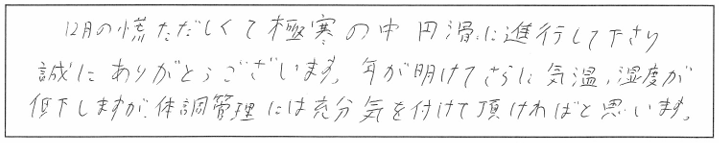 12月の慌ただしくて極寒の中円滑に進行して下さり
誠にありがとうございます。年が明けてさらに気温、湿度が
低下しますが、体調管理には充分気を付けて頂ければと思います。